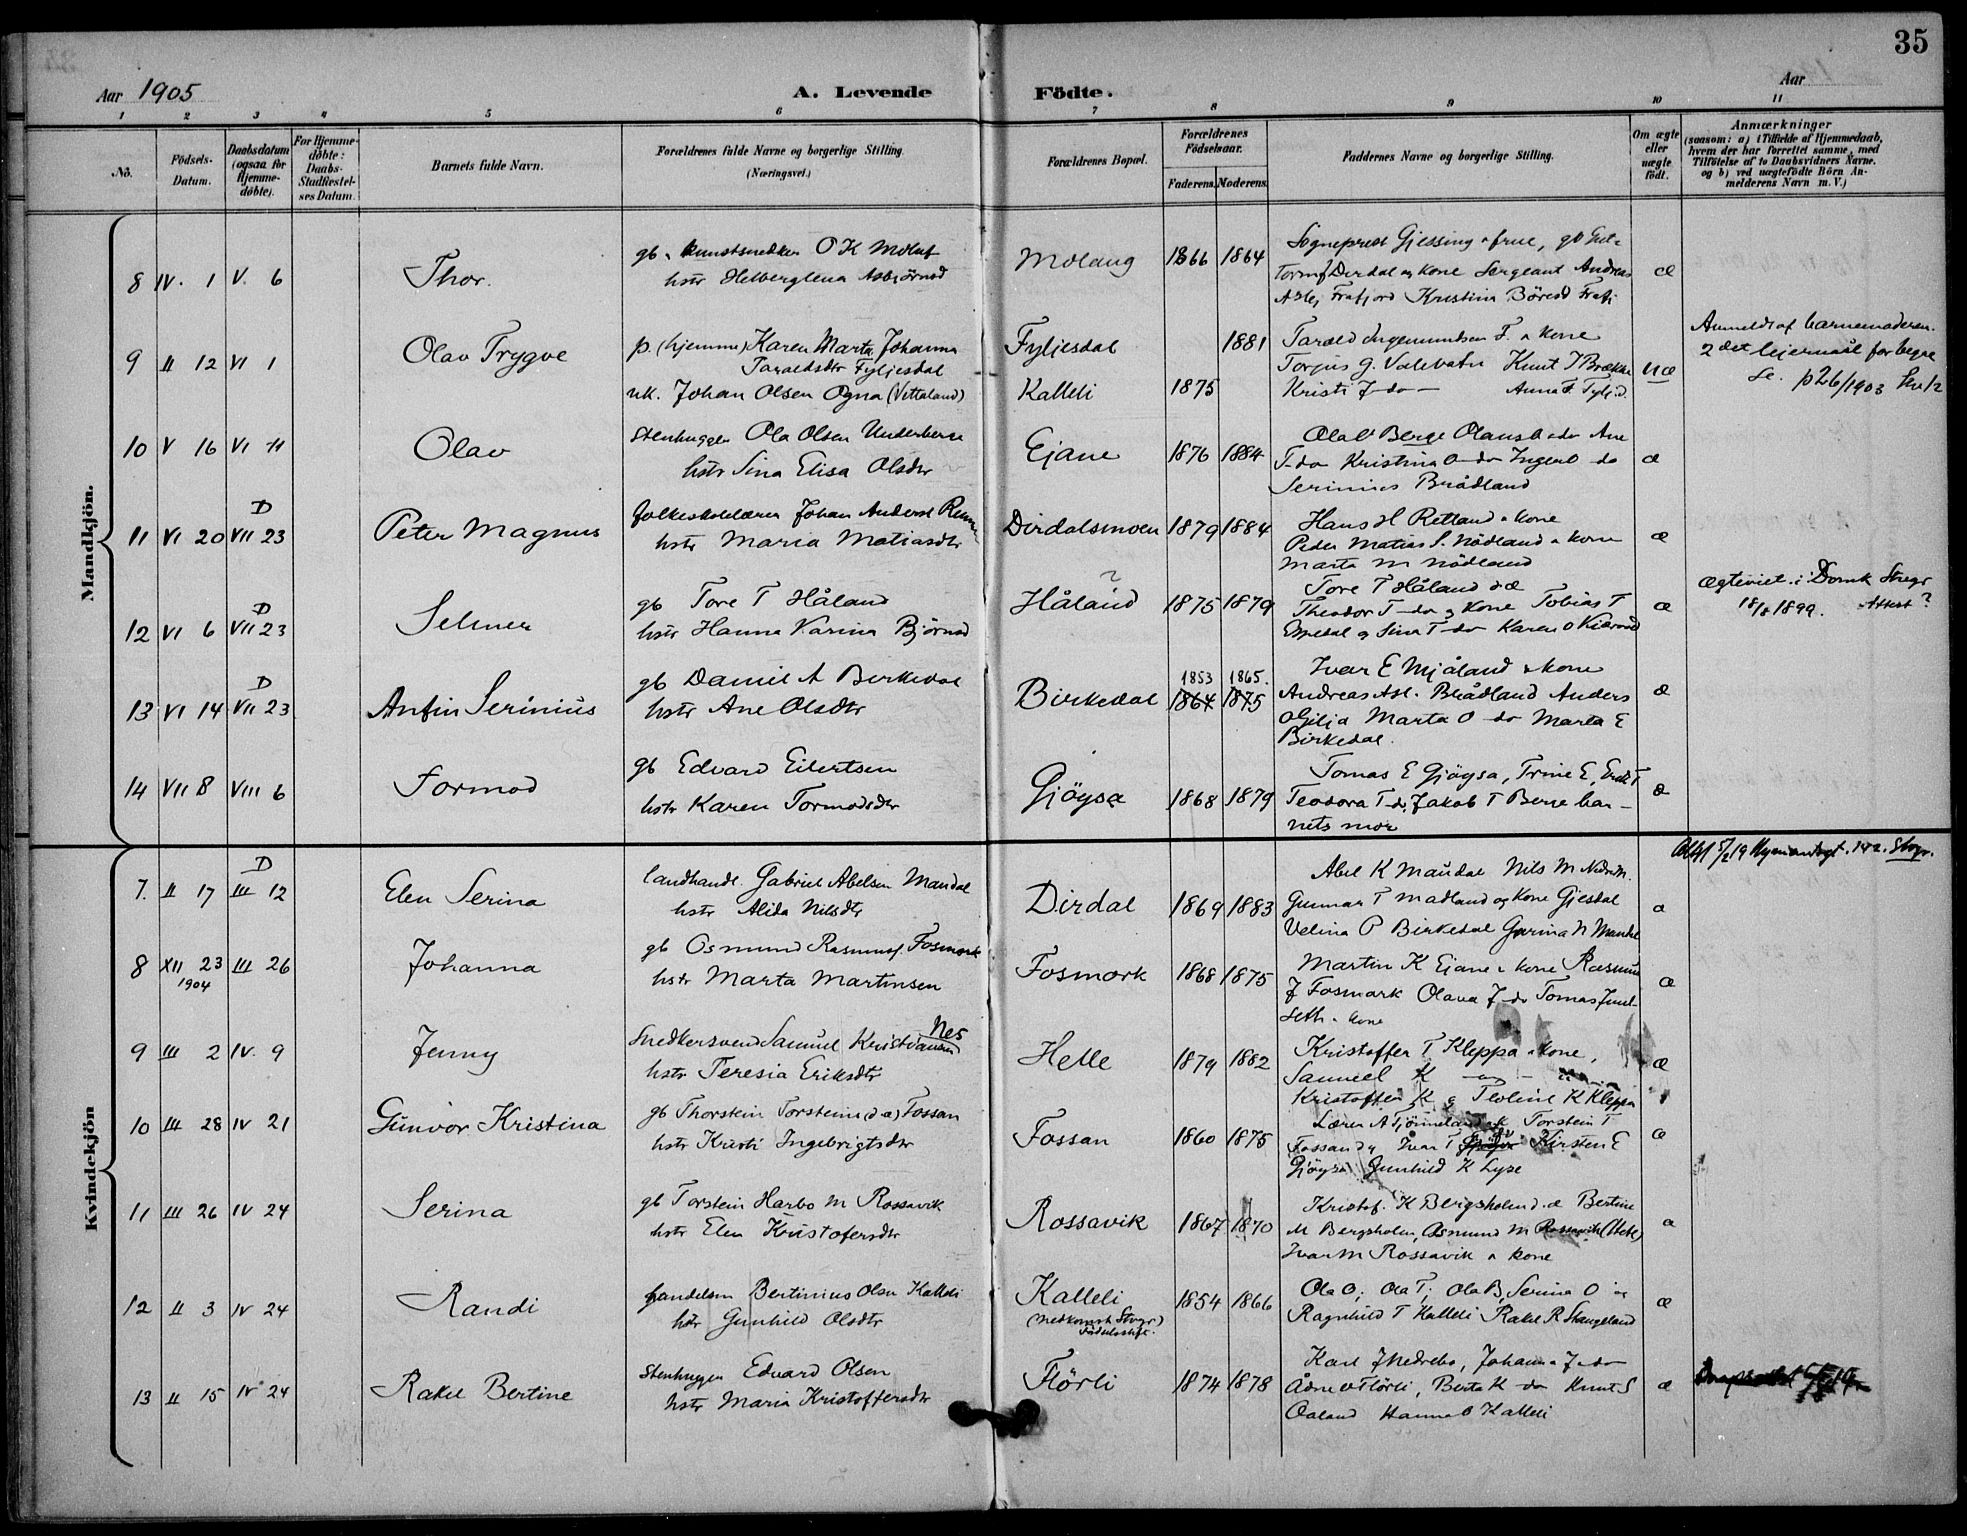 35
Aar 1905
A. Levende Födte.
Aar
1 2 3 4 5 6 7 8 9 10 11
No.
Födsels-Datum.
Daabsdatum (ogsaa for Hjemme-döbte).
For Hjemme-döbte: Daabs-Stadfæstel-ses Datum.
Barnets fulde Navn.
Forældrenes fulde Navne og borgerlige Stilling.
(Næringsvei.)
Forældrenes Bopæl.
Forældrenes Födselsaar.
Faderens. Moderens.
Faddernes Navne og borgerlige Stilling.
Om ægte eller uægte født.
Anmærkninger
(saasom: a) i Tilfælde af Hjemmedaab,
hvem der har forrettet samme, med
Tilföielse af to Daabsvidners Navne.
og b) ved uægtefödte Börn An-
melderens Navn m. V.)
Mandkjön.
8 IV. 1 V. 6 Thor.
gb. kunstsnedker O K Molaug
hstr Helberglena Asbjörnsd
Molaug 1866 1864
Sogneprest Gjessing & frue, gb
Dirdal og kone Sergeant Andreas
Frafjord Kristina Böresd
æ
9 II 12 VI 1 Olav Trygve
p. (hjemme) Karen Marta Johanna
Taraldsdtr Fyljesdal
uk. Johan Olsen Ogna (Vettaland)
Fyljesdal 1881
Kalleli 1875
Tarald Ingemundsen F. & kone
Torjus G. Valevatn Knut T Brække
Kristi J do — Anna
uæ
Anmeldt af barnemoderen.
2det leiermaal for begge
Se. p26/1903
10 V 16 VI 11 Olav
Stenhugger Ola Olsen Underberge
hstr Sina Elisa Olsdtr
Ejane 1876 1884
Ola O Berge do Ane
T do Kristina O do Inger O do
Serinius Brådland
æ
11 VI 20 D VII 23 Peter Magnus
folkeskolelærer Johan Anderst
hstr Maria Matiasdtr
Dirdalsmoen 1879 1884
Hans H Retland & kone
Peder Matias S. Nödland & kone
Marta M Nödland
æ
12 VI 6 D VII 23 Selmer
gb Tore T Håland
hstr Hanna Karina Björnsd
Håland ? 1875 1879
Tore T Håland d æ
Theodor T do & kone Tobias T
Espedal og Sina T do Karen O
æ
Ægteviet i Domk Stvgr
18/8 1899. Attest?
13 VI 14 D VII 23 Anfin Serinius
gb Daniel A Birkedal
hstr Ane Olsdtr
Birkedal 1853 1865.
1864 1875
Ivar E Mjåland & kone
Andreas Asl. Brådland Anders
O Gilja Marta O do Marta E
Birkedal.
æ
14 VII 8 VIII 6 Tormod
gb Edvard Eilertsen
hstr Karen Tormodsdtr
Gjöysa 1868 1879
Tomas E Gjöysa, Trine E,
Teodora T do, Jakob T Berge bar-
nets mor
æ
Kvindekjön
7. II 17 D III 12 Elen Serina
landhandl. Gabriel Abelsen Maudal
hstr Alida Nilsdtr
Dirdal 1869 1883
Abel K Maudal Nils M
Gunnar T Madland og kone Gjesdal
Velina P Birkedal Gurina N Maudal
æ
8 XII 23 1904 III 26 Johanna
gb Osmund Rasmusf. Fosmark
hstr Marta Martinsen
Fosmark 1868 1875
Martin K Ejane & kone Rasmus
J Fosmark Olava J do Tomas
& kone
æ
9 III 2 IV. 9 Jenny
Snedkersvend Samuel Kristiansen Nes
hstr Teresia Eriksdtr
Helle 1879 1882
Kristoffer T Kleppa & kone,
Samuel K
Kristoffer K og Teoline K Kleppa
æ
10 III 28 IV 21 Gunvor Kristina
gb Thorstein Torsteins (d æ) Fossan
hstr Kristi Ingebrigtsdtr
Fossan 1860 1875
Lærer A Tjönneland Torstein T
Fossan d y Ivar T Kirsten E
Gjöysa Gunhild K Lyse
æ
11 III 26 IV 24 Serina
gb Torstein Harbo M Rossavik
hstr Elen Kristofersdtr
Rossavik 1867 1870
Kristof. K Bergsholm d. æ Bertine
M Bergsholm, Osmund M Rossavik (Helle)
Ivar M Rossavik & kone
æ
12 II 3 IV 24 Randi
handelsm Bertinius Olsen Kalleli
hstr Gunhild Olsdtr
Kalleli
1854 1866
Ola O; Ola T; Ola B, Serina O og
Ragnhild T Kalleli Rakel R Skangeland
æ
13 II 15 IV 24 Rakel Bertine
Stenhugger Edvard Olsen
hstr Maria Kristoffersdtr
Flörli 1874 1878
Karl J Nedrebo, Johanna J do
Ådne O Flörli, Berta K do Knut S
Oaland Hanna O Kalleli
æ